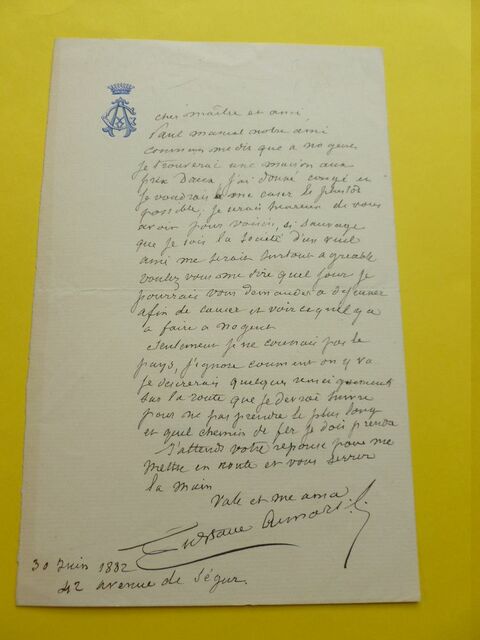 cher maître et ami
Paul manuel notre ami
commun me dit que a nogent
je trouverai une maison aux
prix Doux j'ai donné congé et
je voudrais me caser le plustôt
possible, je serais heureux de vous
avoir pour voisin, si sauvage
que je sois la société d'un vieil
ami me serait surtout agreable
voulez vous me dire quel jour je
pourrais vous demander a dejeuner
afin de causer et voir ce qu'il y a
a faire a nogent
seulement je ne connais pas le
pays, j'ignore comment on y va
je desirerais quelques renseignements
sur la route que je devrai suivre
pour ne pas prendre le plus long
et quel chemin de fer je dois prendre
J'attends votre reponse pour me
mettre en route et vous serrer
la main
Vale et me ama
Gustave Aimard
30 Juin 1882
42 avenue de Ségur